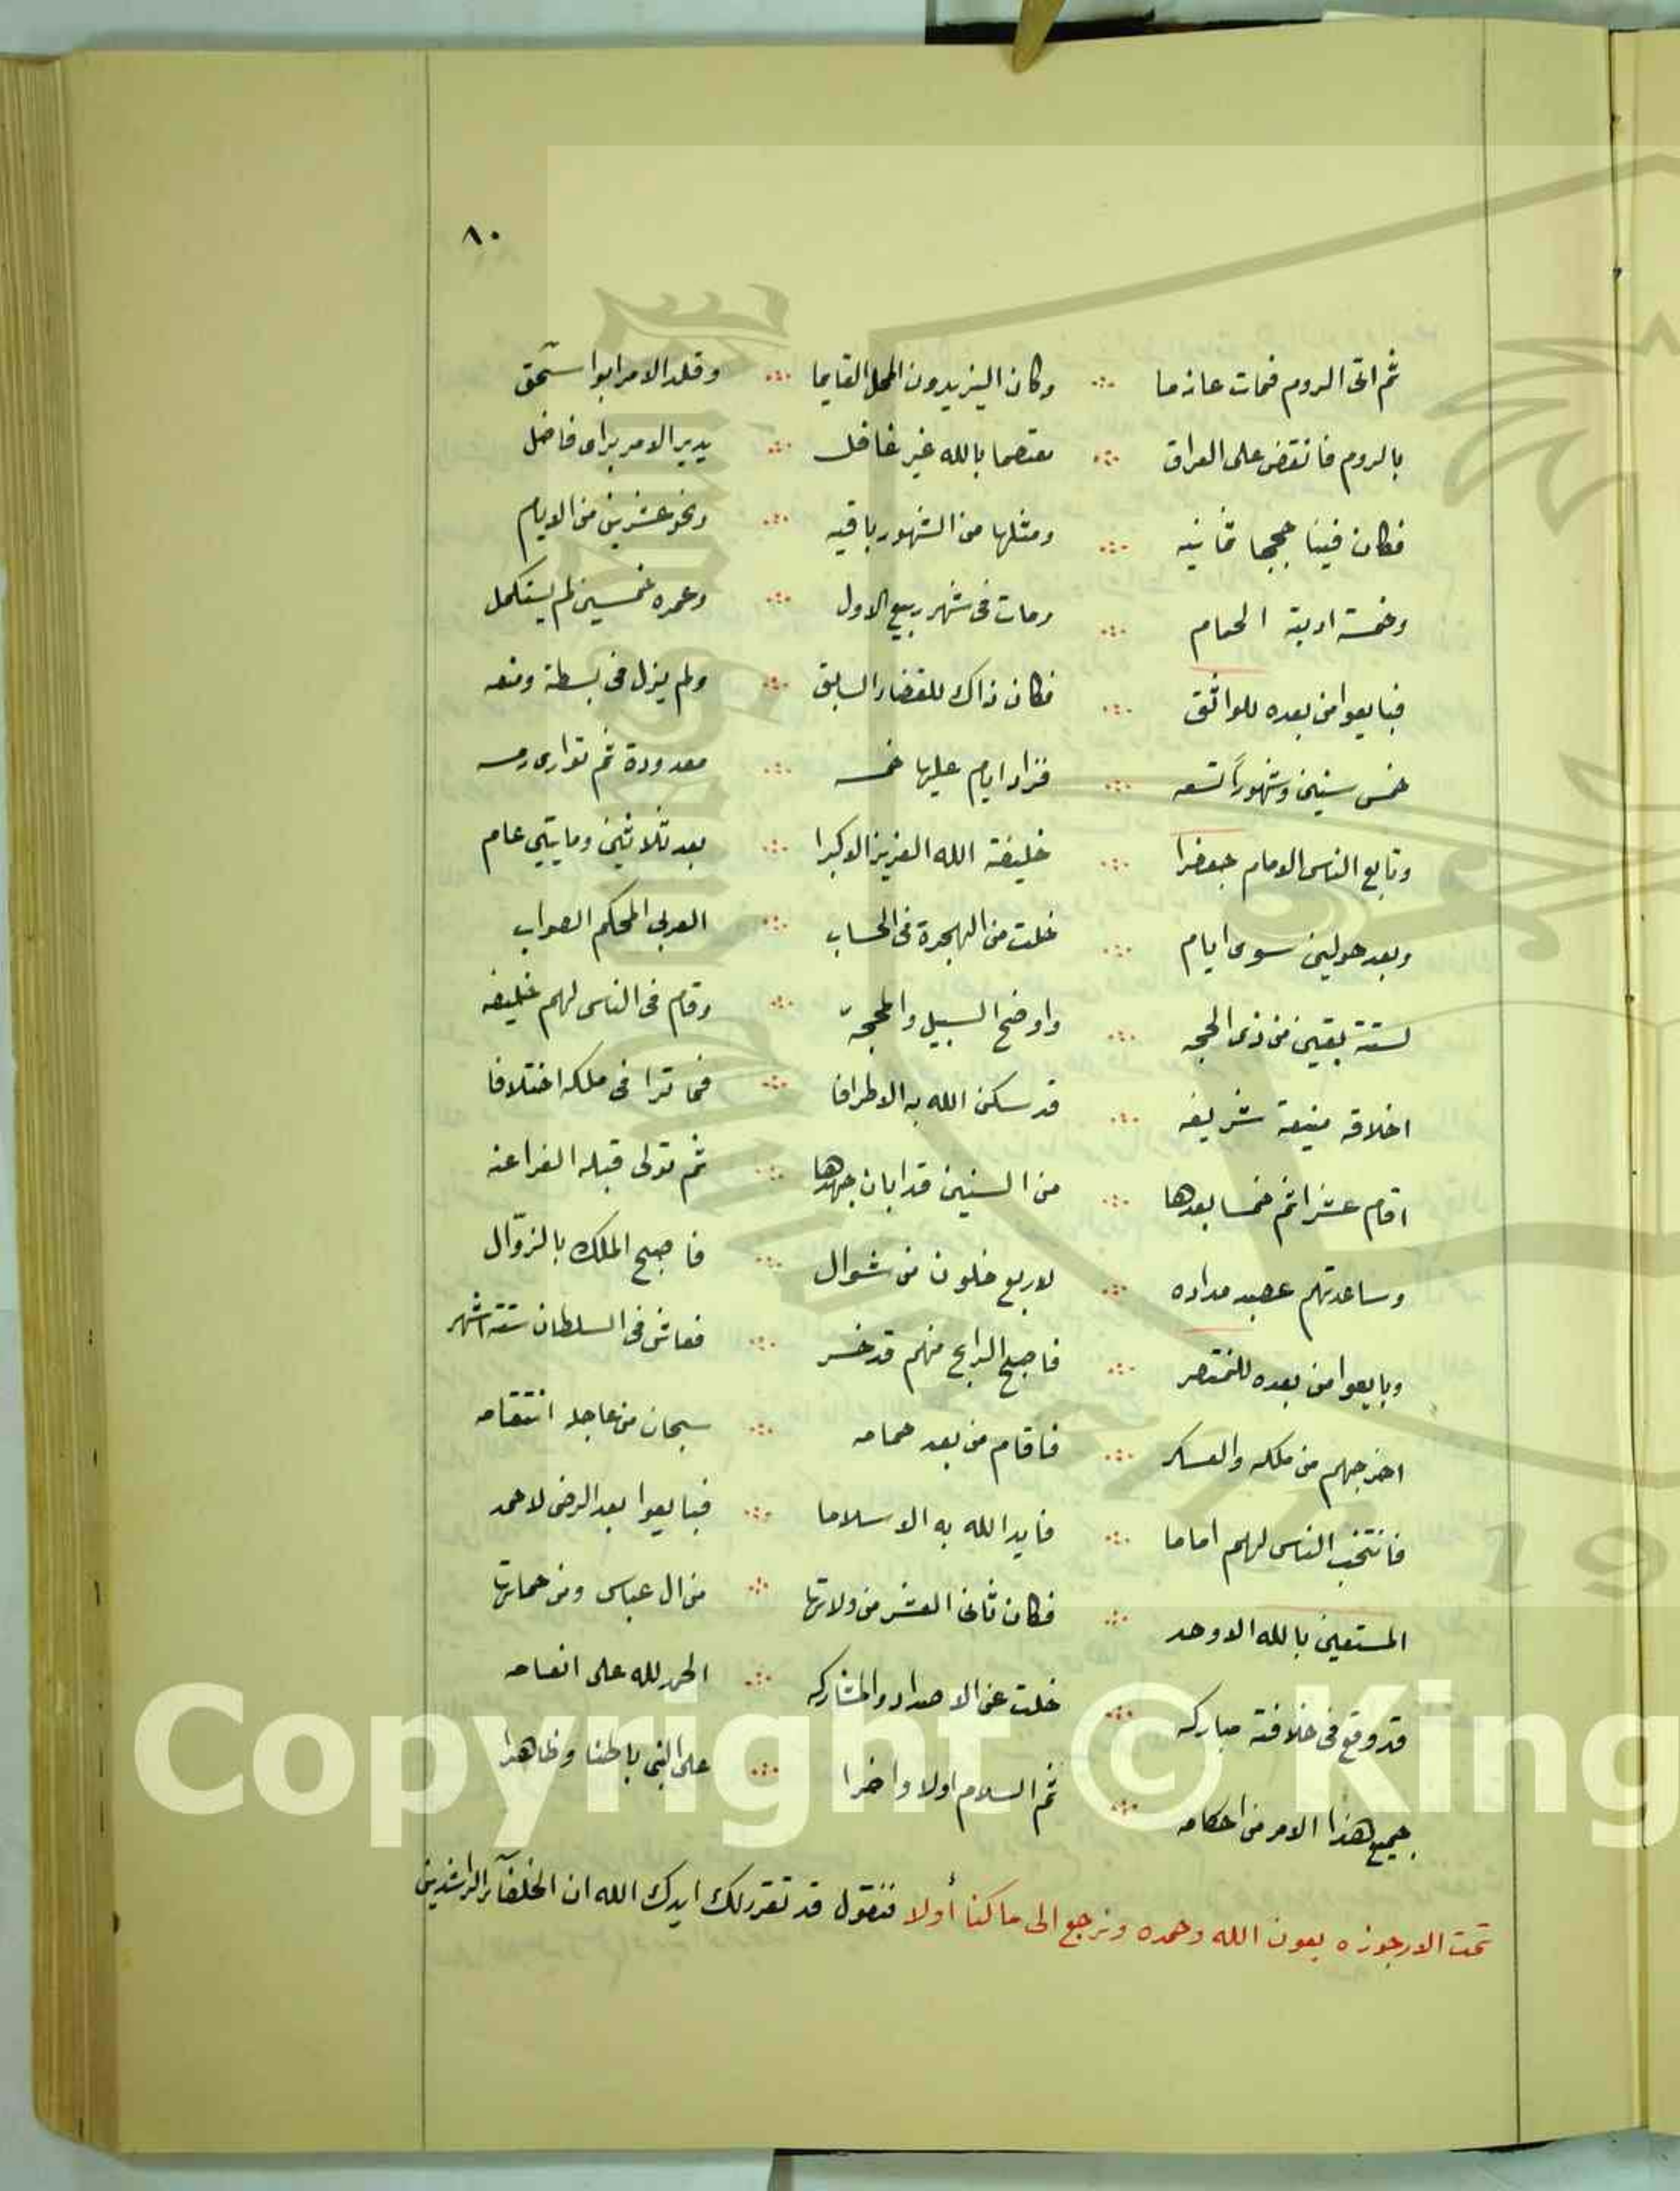 ٨٠
ثم اتى الروم فمات عازما ∴ وكان اليزيدون المحل القايما ∴ وقلد الامر ابوا سحق
بالروم فانتقض على العراق ∴ معتصما بالله غير غافل ∴ يدير الامر براى فاضل
فكان فينا حججا ثمانيه ∴ ومثلها من الشهور باقيه ∴ ونحو عشرين من الايام
وخمسة ادبية الحمام ∴ ومات فى شهر ربيع الاول ∴ وعمره خمسين لم يستكمل
فبايعوا من بعده للواثق ∴ فكان ذاك للقضاء السابق ∴ ولم يزل فى بسطة ومنعه
خمس سنين وشهوراً تسعه ∴ فزاد ايام عليها خمسه ∴ معدودة ثم توارى رمسه
وتابع الناس الامام جعفرا ∴ خليفة الله العزيز الاكبرا ∴ بعد ثلاثين ومايتي عام
وبعد حولين سوى ايام ∴ خلت من الهجرة فى الحساب ∴ العربى المحكم الصواب
لستة بقين من ذى الحجه ∴ واوضح السبيل والمحجة ∴ وقام فى الناس لهم خليفه
اخلاقه منيعة شريفه ∴ قد سكن الله به الاطرافا ∴ فما ترا فى ملكه اختلافا
اقام عشرا ثم خمسا بعدها ∴ من السنين قد ابان جهدها ∴ ثم تولى قبله الفراعنه
وساعدتهم عصبه مداده ∴ لاربع خلون من شوال ∴ فاصبح الملك بالزوّال
وبايعوا من بعده للمنتصر ∴ فاصبح الرابح منهم قد خسر ∴ فعاش فى السلطان ستة اشهر
اخرجهم من ملكه والعسكر ∴ فاقام من بعد حمامه ∴ سبحان من عاجله انتقامه
فانتخب الناس لهم اماما ∴ فايد الله به الاسلاما ∴ فبايعوا بعد الرضى لاحمد
المستعين بالله الاوحد ∴ فكان ثانى العشر من ولاتها ∴ من ال عباس ومن حماتها
قد وقع فى خلافة مباركه ∴ خلت عن الاضداد والمشاركه ∴ الحمد لله على انعامه
جميع هذا الامر من احكامه ∴ ثم السلام اولا واخرا ∴ على النبى باطنا وظاهرا
تمت الارجوزه بعون الله وحمده ونرجع الى ما كنا أولا فنقول قد تقرر لك ايدك الله ان الخلفآء الراشدين
Copyright © King
19